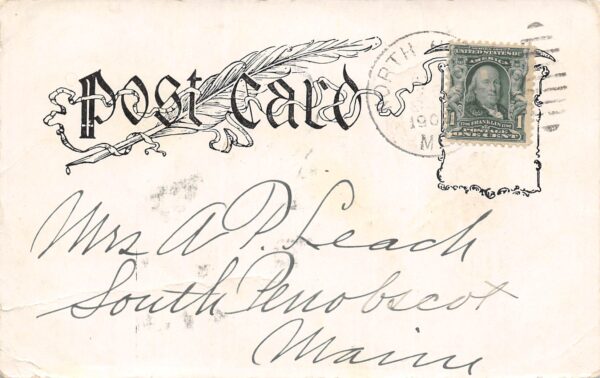 Post Card
ORTH
190
M
UNITED STATES OF
AMERICA
1 FRANKLIN 1
POSTAGE
ONE CENT
Mrs A. P. Leach
South Penobscot
Maine